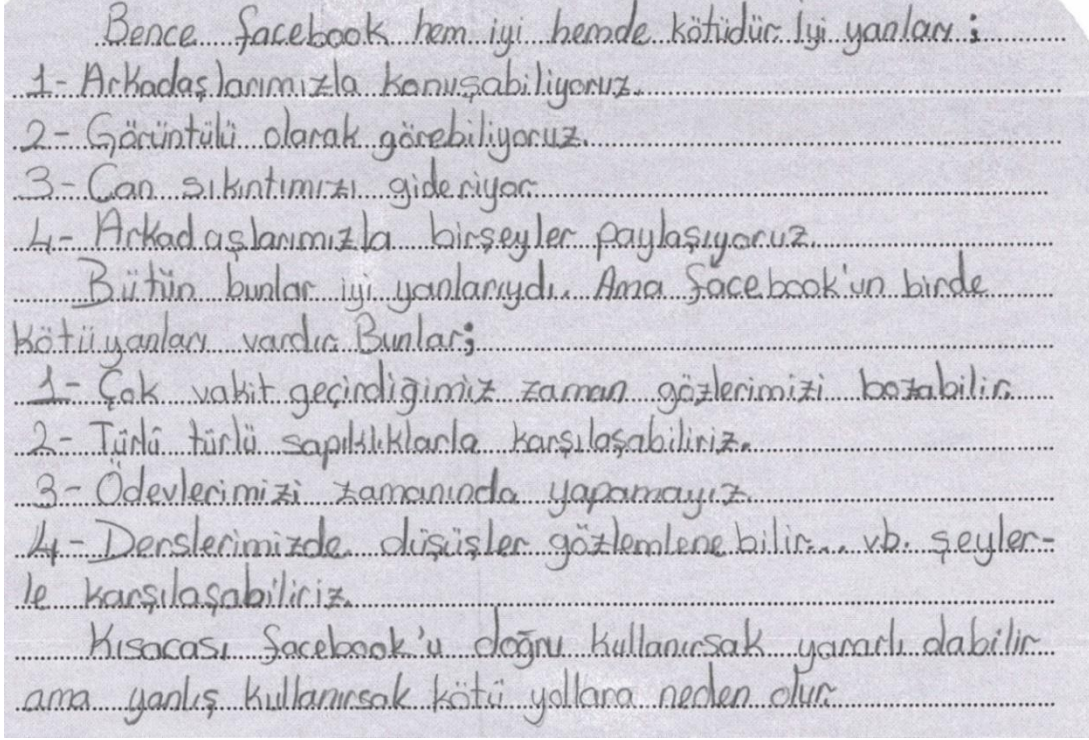 Bence facebook hem iyi hemde kötüdür. İyi yanları ;
1- Arkadaşlarımızla konuşabiliyoruz.
2- Görüntülü olarak görebiliyoruz.
3- Can sıkıntımızı gideriyor.
4- Arkadaşlarımızla birşeyler paylaşıyoruz.
Bütün bunlar iyi yanlarıydı. Ama facebook'un birde
kötü yanları vardır. Bunlar;
1- Çok vakit geçirdiğimiz zaman gözlerimizi bozabilir.
2- Türlü türlü sapıklıklarla karşılaşabiliriz.
3- Ödevlerimizi zamanında yapamayız.
4- Derslerimizde düşüşler gözlemlenebilir... vb. şeyler-
le karşılaşabiliriz.
Kısacası facebook'u doğru kullanırsak yararlı olabilir
ama yanlış kullanırsak kötü yollara neden olur.